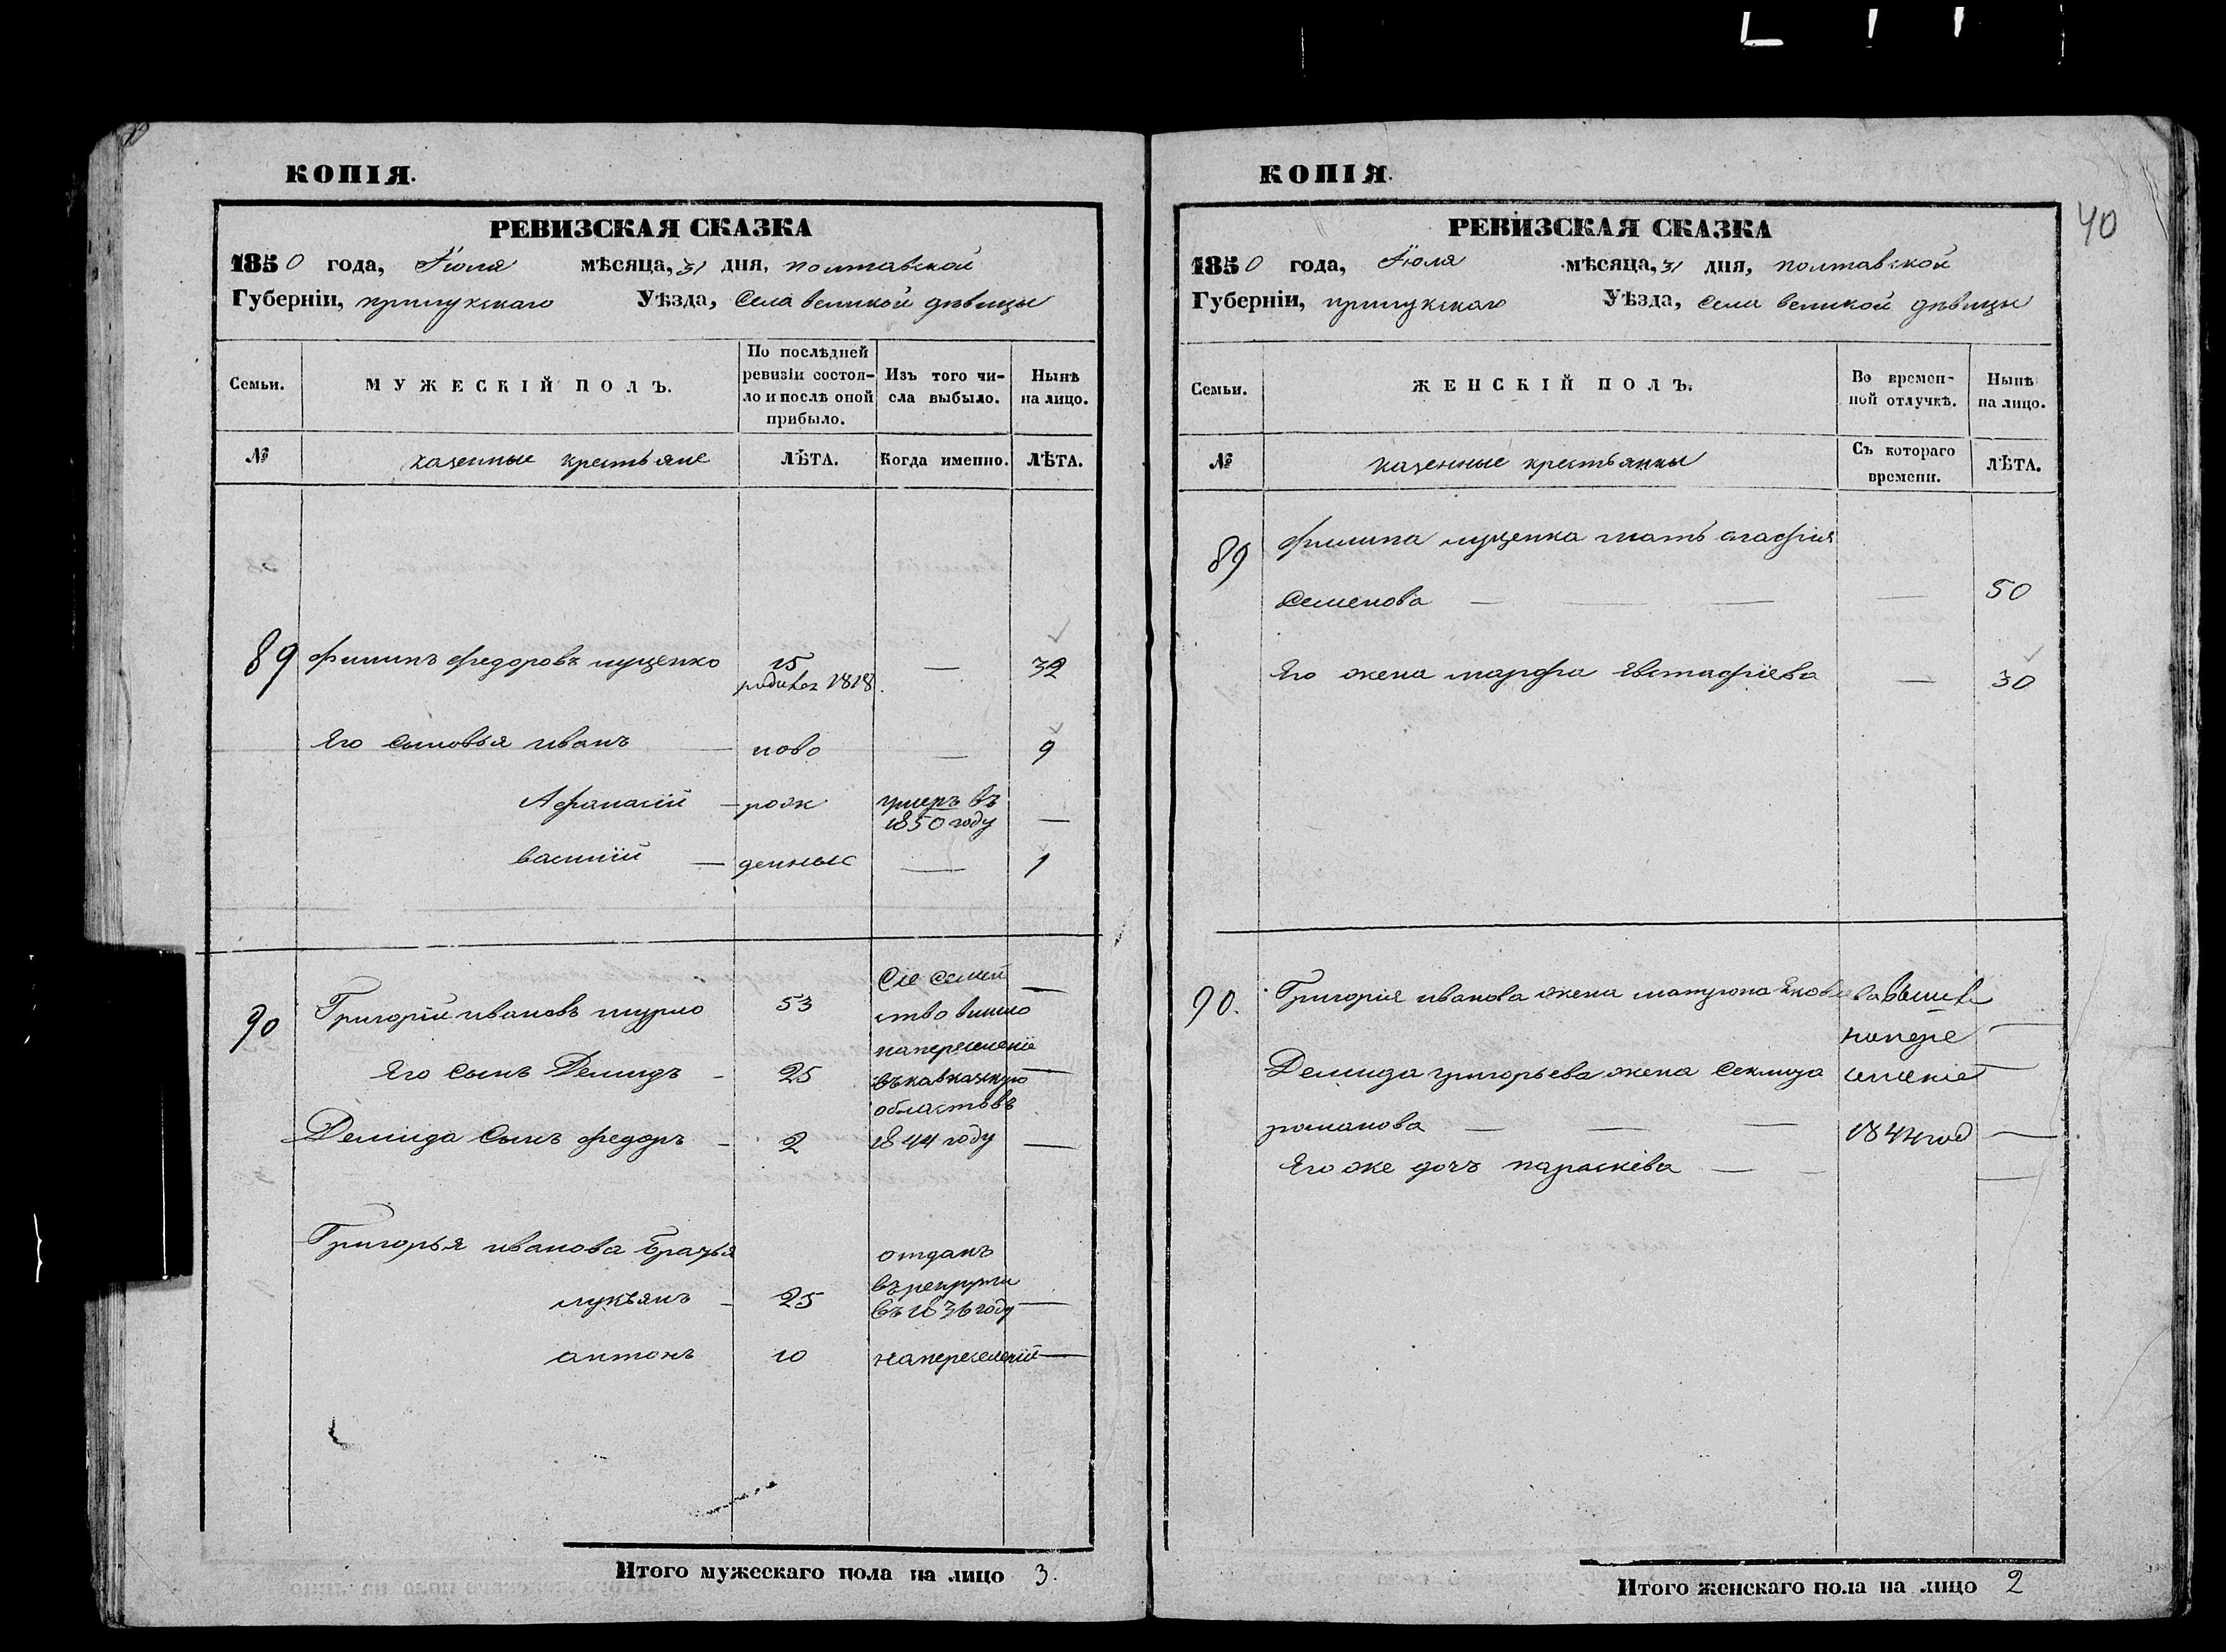 КОПІЯ.
РЕВИЗСКАЯ СКАЗКА
1850 года, Июля мѣсяца, 31 дня, полтавской
Губерніи, прилукскаго Уѣзда, Села великой дѣвицы
Семьи.
МУЖЕСКІЙ ПОЛЪ.
По послѣдней
ревизіи состоя-
ло и послѣ оной
прибыло.
Изъ того чи-
сла выбыло.
Нынѣ
на лицо.
№
казенные крестьяне
ЛѢТА.
Когда именно.
ЛѢТА.
89 Филипъ федоровъ луценко 15 — 32
родился 1818.
Его сыновья иванъ — ново — 9
Афанасій — рож умеръ въ
1850 году —
василій — денные — 1
90 Григорій ивановъ 53
Сіе семей —
ство вышло
на переселеніе
Его сынъ Демидъ - 25 въ кавказкую —
область въ
Демида Сынъ федоръ - 2 1844 году —
Григорья иванова братья
лукъянъ - 25
отданъ
въ рекруты
въ 1836 году —
антонъ 10 на переселеніи —
Итого мужескаго пола на лицо 3.
КОПІЯ.
40
РЕВИЗСКАЯ СКАЗКА
1850 года, Июля мѣсяца, 31 дня, полтавской
Губерніи, прилукскаго Уѣзда, Села великой дѣвицы
Семьи.
ЖЕНСКІЙ ПОЛЪ.
Во времен-
ной отлучкѣ.
Нынѣ
на лицо.
№
казенные крестьянки
Съ котораго
времени.
ЛѢТА.
89 филипа луценка мать агафія
Семенова — — — — 50
Его жена марфа Евстафіева — 30
90. Григорія иванова жена матрона Яковлева
Демида григорьева жена Секлита
романова — — — 1844 год —
Его же дочъ параскева — —
Итого женскаго пола на лицо 2